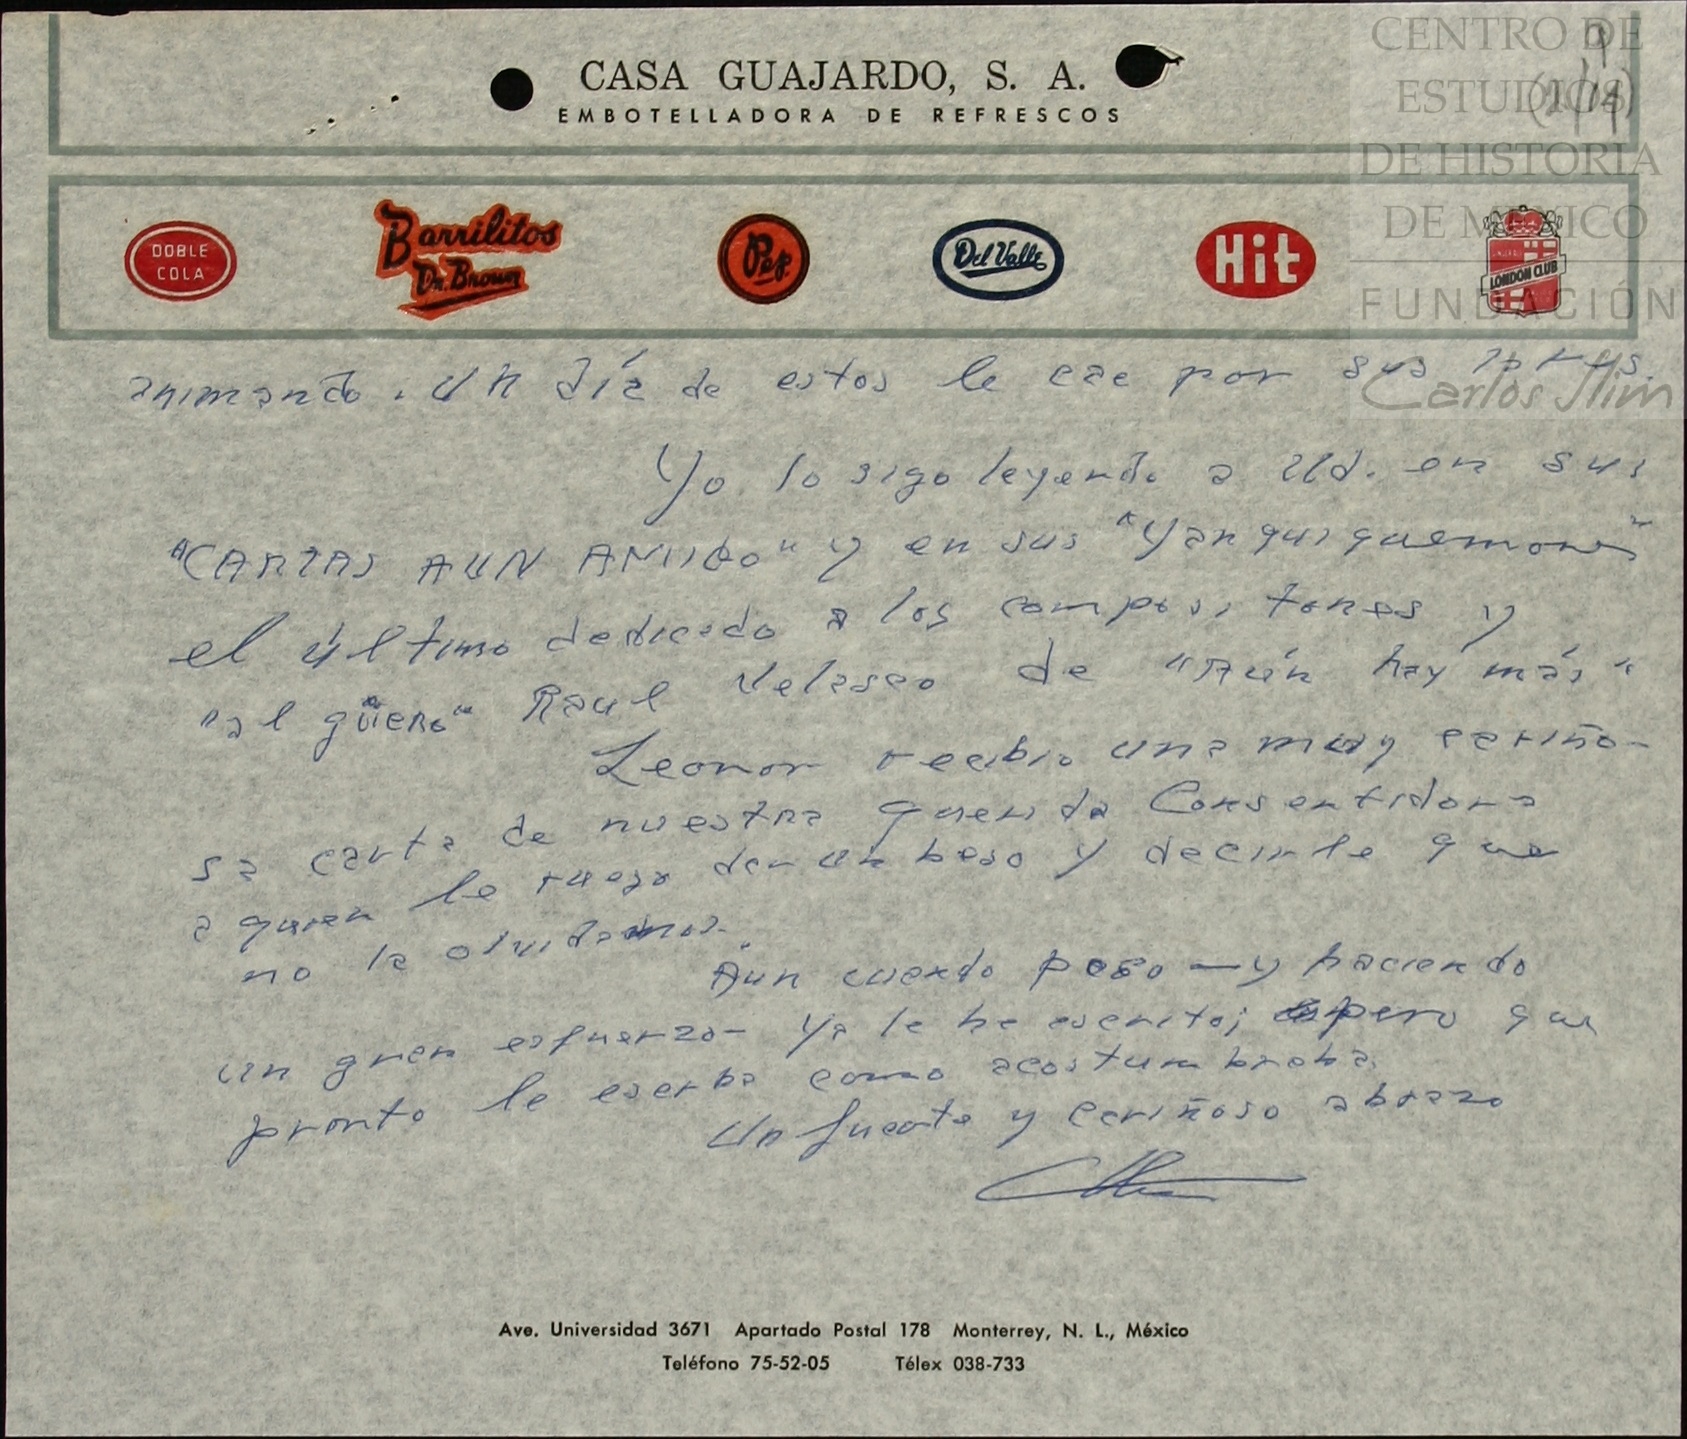 CASA GUAJARDO, S. A.
EMBOTELLADORA DE REFRESCOS
CENTRO DE
ESTUDIOS
DE HISTORIA
DE MÉXICO
FUNDACIÓN
Carlos Slim
DOBLE
COLA
Barrilitos
Dr. Brown
Pep.
Del Valle
Hit
LONDON CLUB
animando. Un día de estos le cae por sus
Yo lo sigo leyendo a Ud. en sus
"CARTAS A UN AMIGO" y en sus "Yanquiquemones"
el último dedicado a los compositores y
"al güero" Raul Velasco de "Aún hay más"
Leonor recibio una muy cariño-
sa carta de nuestra querida Consentidora
a quien le ruego dar un beso y decirle que
no la olvidamos.
Aún cuando poco — y haciendo
un gran esfuerzo — ya le he escrito; espero que
pronto le escriba como acostumbraba.
Un fuerte y cariñoso abrazo
Ave. Universidad 3671 Apartado Postal 178 Monterrey, N. L., México
Teléfono 75-52-05 Télex 038-733